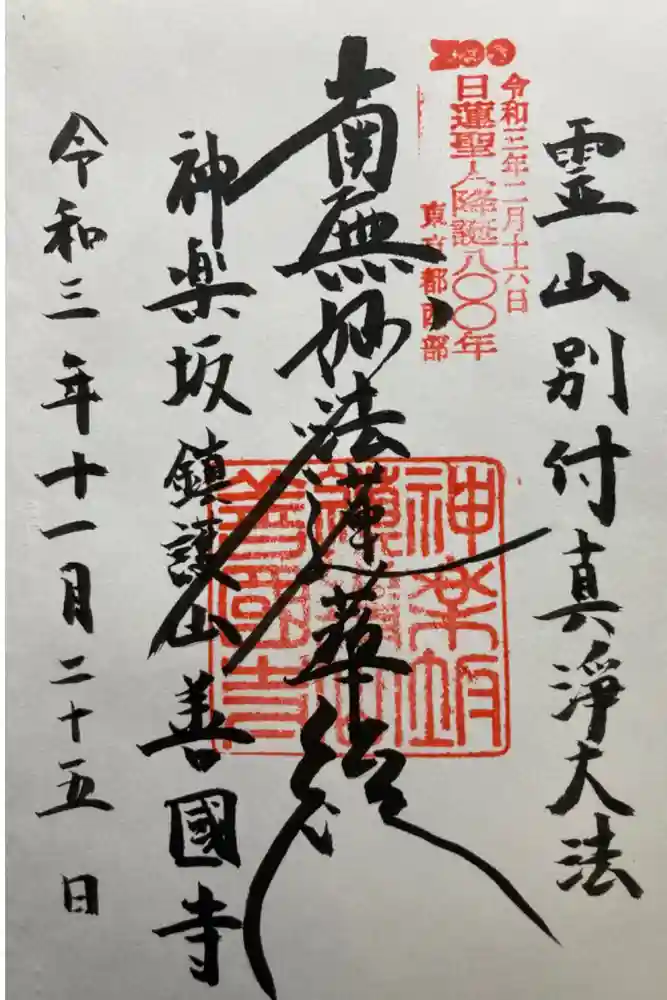 霊山別付真淨大法
800
令和三年二月十六日
日蓮聖人降誕八〇〇年
東京都西部
南無妙法蓮華経
神楽坂鎮護山善國寺
神楽坂
鎮護山
善國寺
令和三年十一月二十五日